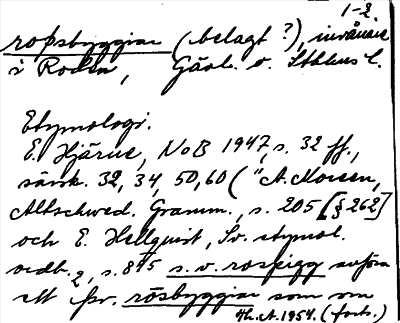 1-2
roþsbyggiar (belagt ?), invånare
i Roden, Gävl. o. Sthlms l.
Etymologi.
E. Hjärne, NoB 1947, s. 32 ff.,
särsk. 32, 34, 50, 60 ("A. Noreen,
Altschwed. Gramm., s. 205 [§ 262]
och E. Hellquist, Sv. etymol.
ordb. 2, s. 845 s. v. rospigg anföra
ett fsv. rōsbyggiar som om
Th. A. 1954. (forts.)